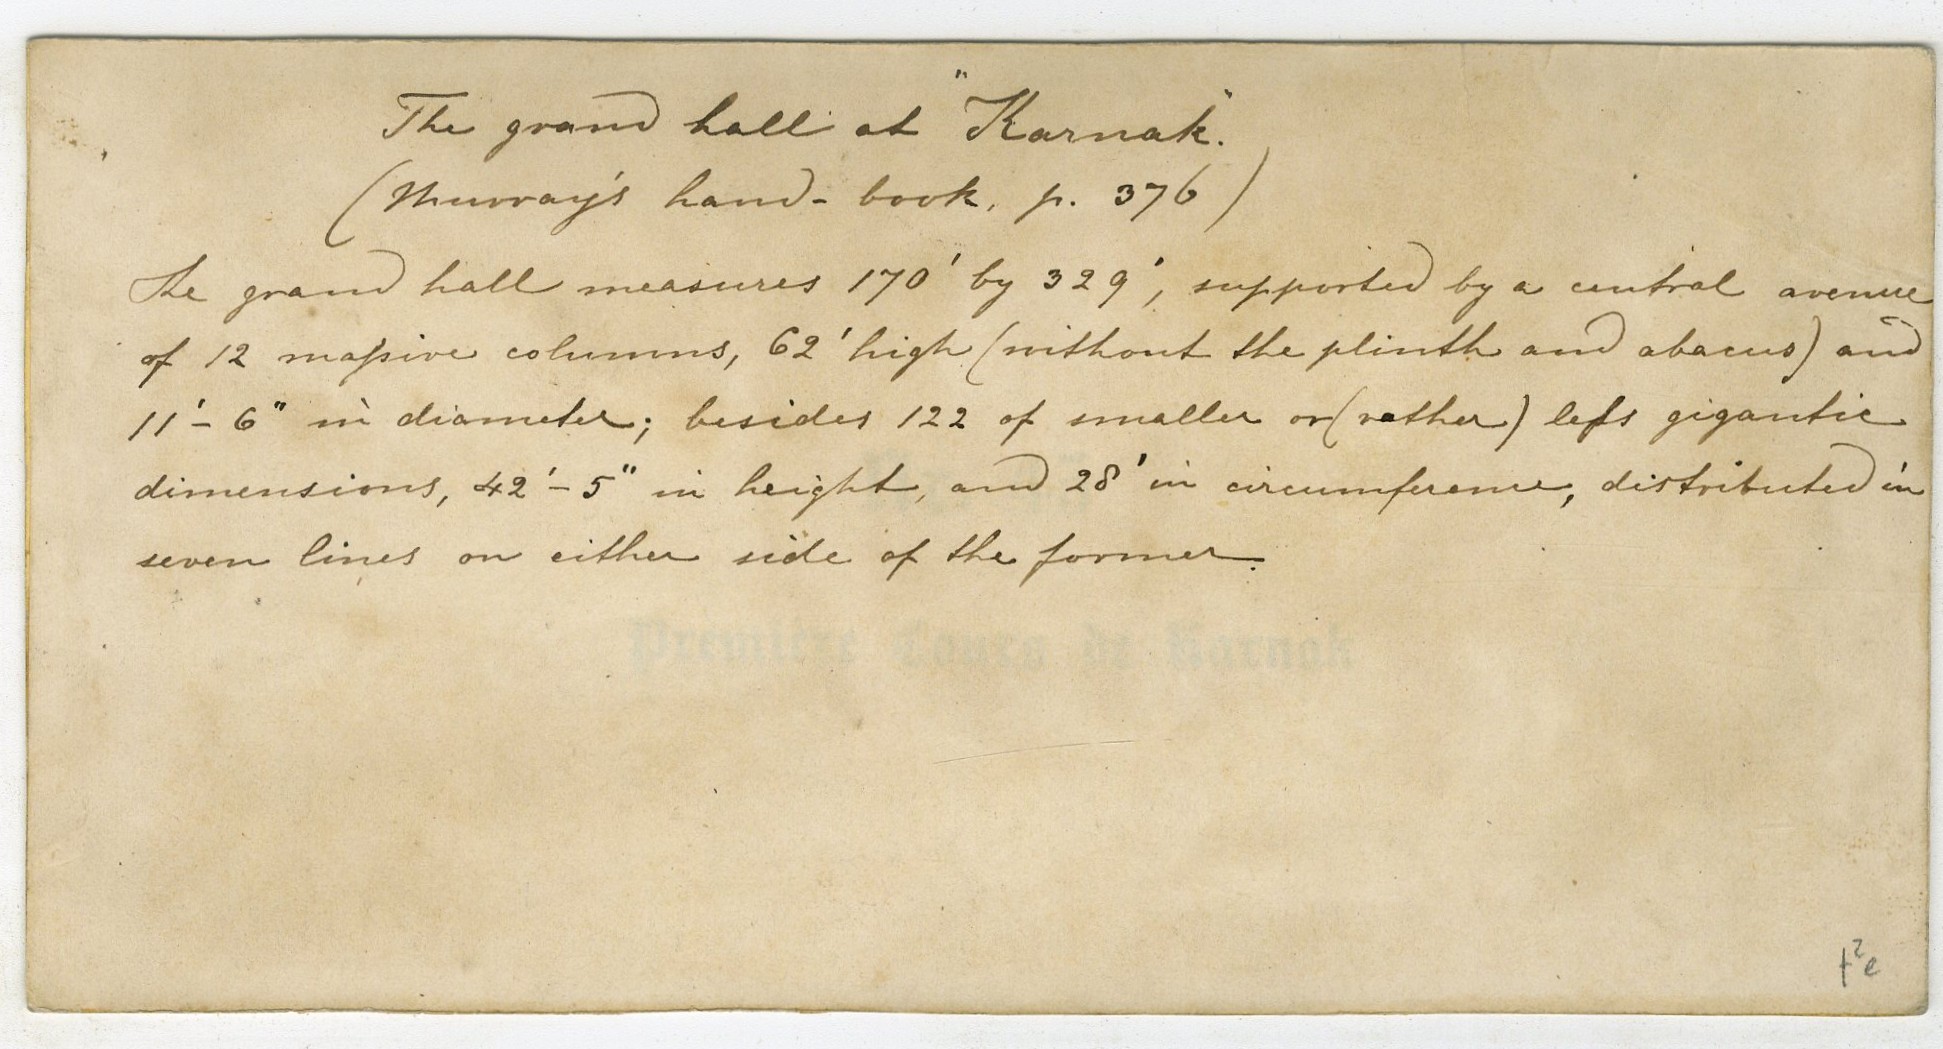 The grand hall at "Karnak".
(Murray's hand-book, p. 376)
The grand hall measures 170' by 329', supported by a central avenue
of 12 massive columns, 62' high (without the plinth and abacus) and
11'-6" in diameter; besides 122 of smaller or (rather) less gigantic
dimensions, 42'-5" in height, and 28' in circumference, distributed in
seven lines on either side of the former.
Première Cours de Karnak